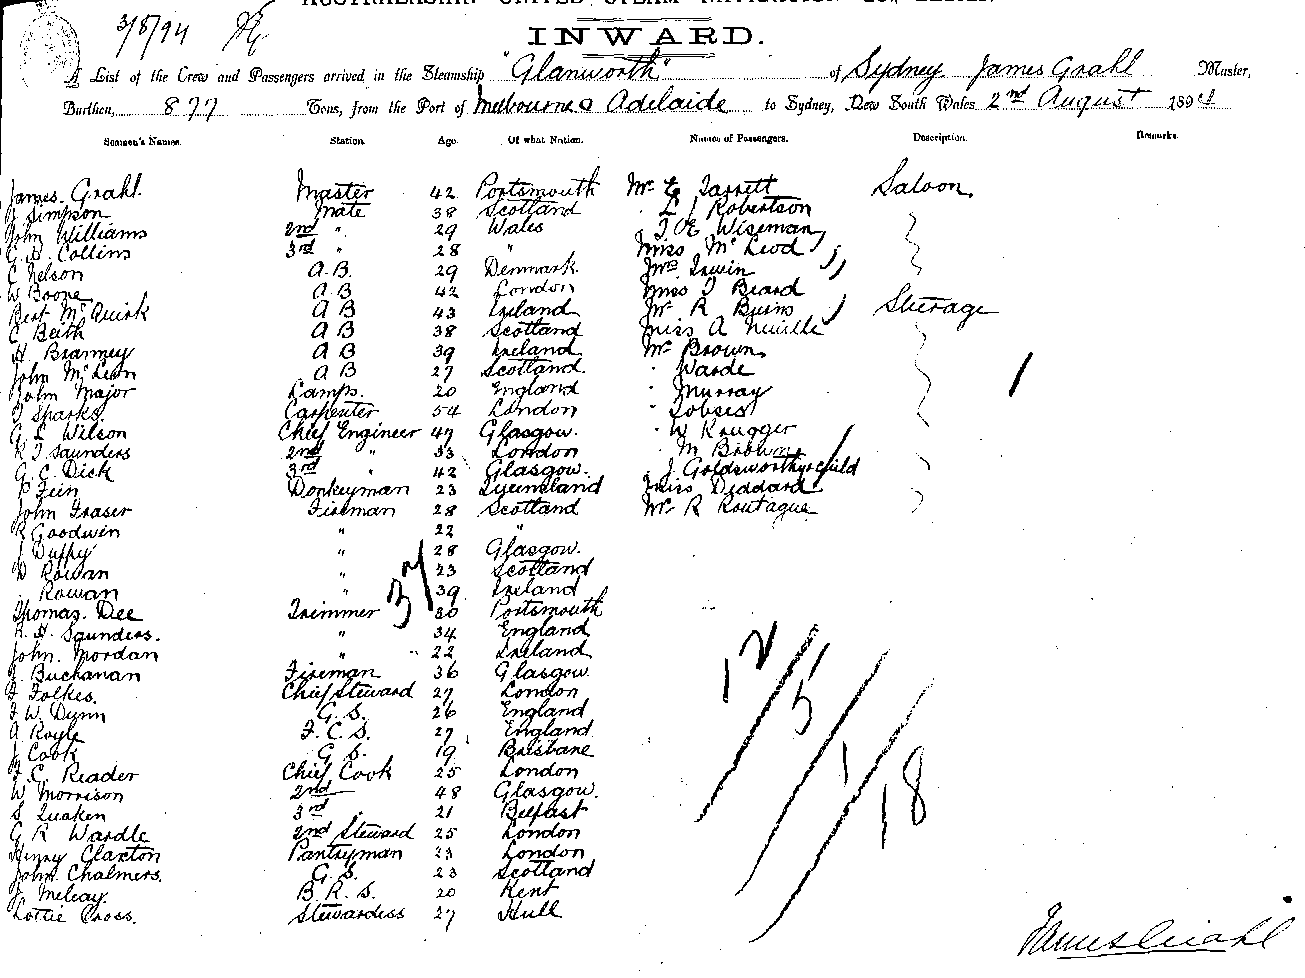 AUSTRALASIAN UNITED STEAM NAVIGATION CO., LIMITED.
3/8/94
INWARD.
A List of the Crew and Passengers arrived in the Steamship "Glanworth" of Sydney James Grahl Master,
Burthen, 877 Tons, from the Port of Melbourne & Adelaide to Sydney, New South Wales 2nd August 1894
Seamen's Names. Station. Age. Of what Nation. Names of Passengers. Description. Remarks.
James Grahl. Master 42 Portsmouth Mr E Jarrett Saloon
J Simpson Mate 38 Scotland " L J Robertson
John Williams 2nd " 29 Wales " Wiseman
Collins 3rd " 28 " Miss McLeod
C Nelson A.B. 29 Denmark Mrs Irwin
W Boone A B 42 London Miss Beard
Bert McQuirk A B 43 Ireland Mr R Burns Steerage
C Beith A B 38 Scotland Miss A Neville
H Branney A B 39 Ireland Mr Brown
John McLean A B 27 Scotland " Warde
John Major Lamps. 20 England " Murray
Sparks. Carpenter 54 London "
G L Wilson Chief Engineer 47 Glasgow. " W Krugger
Saunders 2nd " 33 London " M Brown
G C Dick 3rd " 42 Glasgow. J Goldsworthy & child
P Fein Donkeyman 23 Queensland Miss Deddard
John Fraser Fireman 28 Scotland Mr R Routague
R Goodwin " 22 "
J Duffy " 28 Glasgow.
D Rowan " 23 Scotland
Rowan " 39 Ireland
37
Thomas Dee Trimmer 30 Portsmouth
Saunders. " 34 England
John Mordan " 22 Ireland
J. Buchanan Fireman 36 Glasgow
F Folkes. Chief Steward 27 London
F W. Dunn G. S. 26 England
A Royle F. C. S. 27 England
J Cook G S. 19 Brisbane
F. C. Reader Chief Cook 25 London
W Morrison 2nd 48 Glasgow.
S Quaken 3rd " 21 Belfast
G R Wardle 2nd Steward 25 London
Henry Claxton Pantryman 23 London
John Chalmers. G. S. 23 Scotland
B. R. S. 20 Kent
Lottie Cross. Stewardess 27 Hull
12/5/1/18
James Grahl